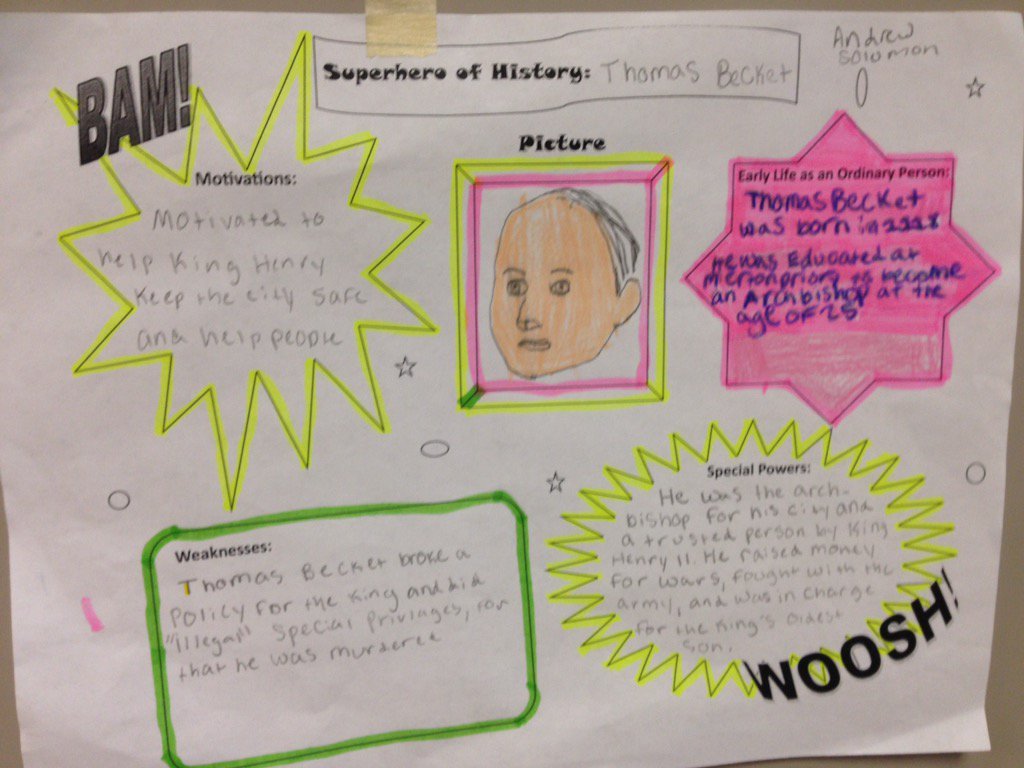 BAM!
Superhero of History: Thomas Becket
Andrew
Solomon
Motivations:
Motivated to
help King Henry
Keep the city safe
and help people
Picture
Early Life as an Ordinary Person:
Thomas Becket
was born in 1118
He was Educated at
merton priory to become
an Archbishop at the
age of 25
Weaknesses:
Thomas Becket broke a
Policy for the King and did
"illegal" special privlages, for
that he was murdered
Special Powers:
He was the arch-
bishop for his city and
a trusted person by King
Henry II. He raised money
for wars, fought with the
army, and was in charge
for the King's oldest
son.
WOOSH!